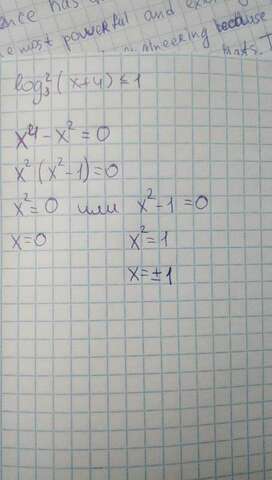 ence has
most powerful and
engineering because
log₃²(x+4) ≤ 1
x⁴ - x² = 0
x²(x²-1)=0
x²=0 или x²-1=0
x=0 x²=1
x=±1